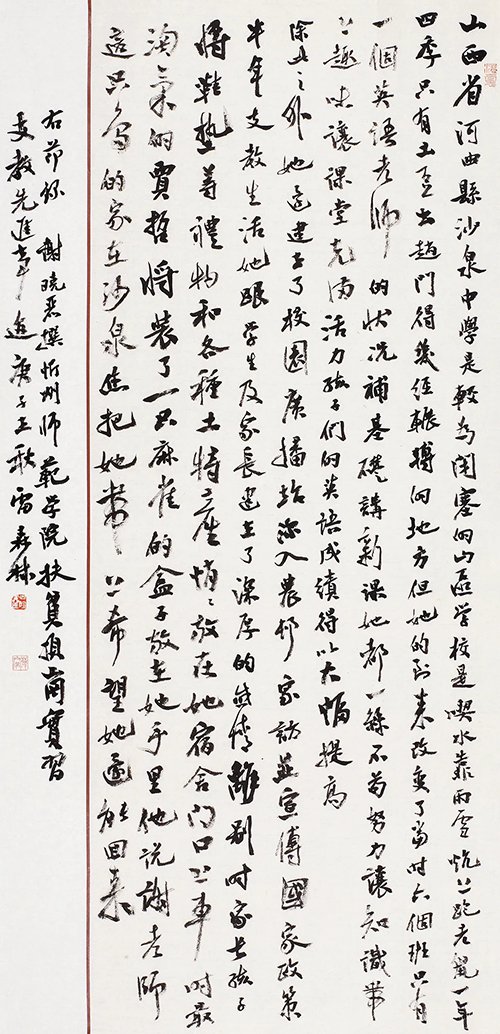 山西省河曲縣沙泉中學是較為閉塞的山區学校是喫水靠雨雪炕上跑老鼠一年
四季只有土豆出趟門得幾經輾轉的地方但她的到来改变了當时六個班只有
一個英语老师的状況補基礎講新课她都一絲不苟努力讓知識带
上趣味讓课堂充满活力孩子们的英语成績得以大幅提高
除此之外她還建立了校園廣播站深入農村家訪並宣傳國家政策
半年支教生活她跟学生及家長建立了深厚的感情離别时家长孩子
將鞋墊等禮物和各種土特産悄悄放在她宿舍门口上車时最
淘氣的賈哲將装了一只麻雀的盒子放在她手里他说謝老师
這只鸟的家在沙泉您把她帶上希望她還能回来
右節録謝晓君撰忻州师範学院扶貧頂崗實習
支教先進事迹庚子之秋雷